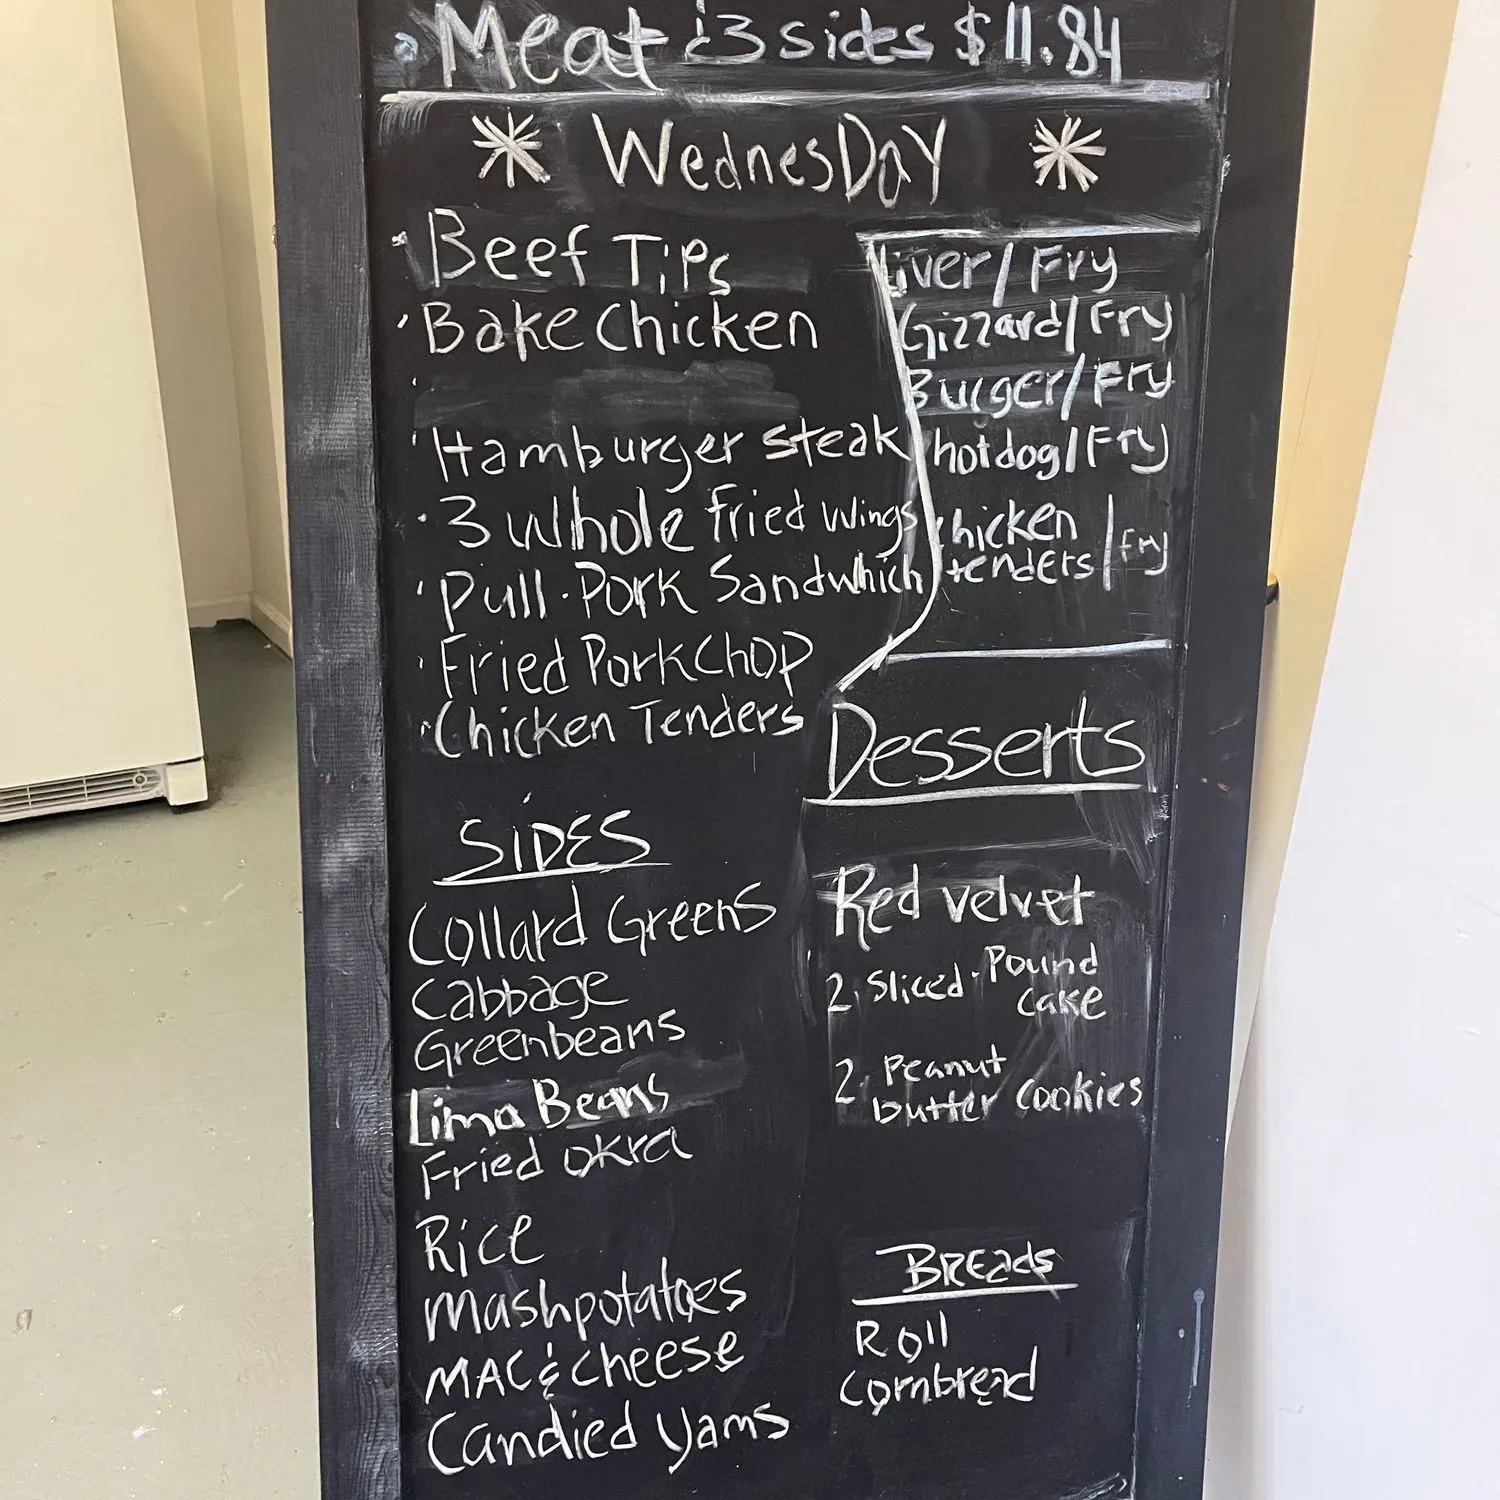 Meat & 3 sides $11.84
* WednesDaY *
· Beef Tips
· Bake Chicken
· Hamburger steak
· 3 Whole fried Wings
· Pull·Pork Sandwhich
· Fried PorkChop
· Chicken Tenders
Liver/Fry
Gizzard/Fry
Burger/Fry
hotdog/Fry
chicken
tenders/fry
SiDES
Collard Greens
Cabbage
Greenbeans
Lima Beans
Fried okra
Rice
Mashpotatoes
MAC & cheese
Candied yams
Desserts
Red velvet
2. Sliced·Pound
cake
2. Peanut
butter cookies
BReads
Roll
Cornbread